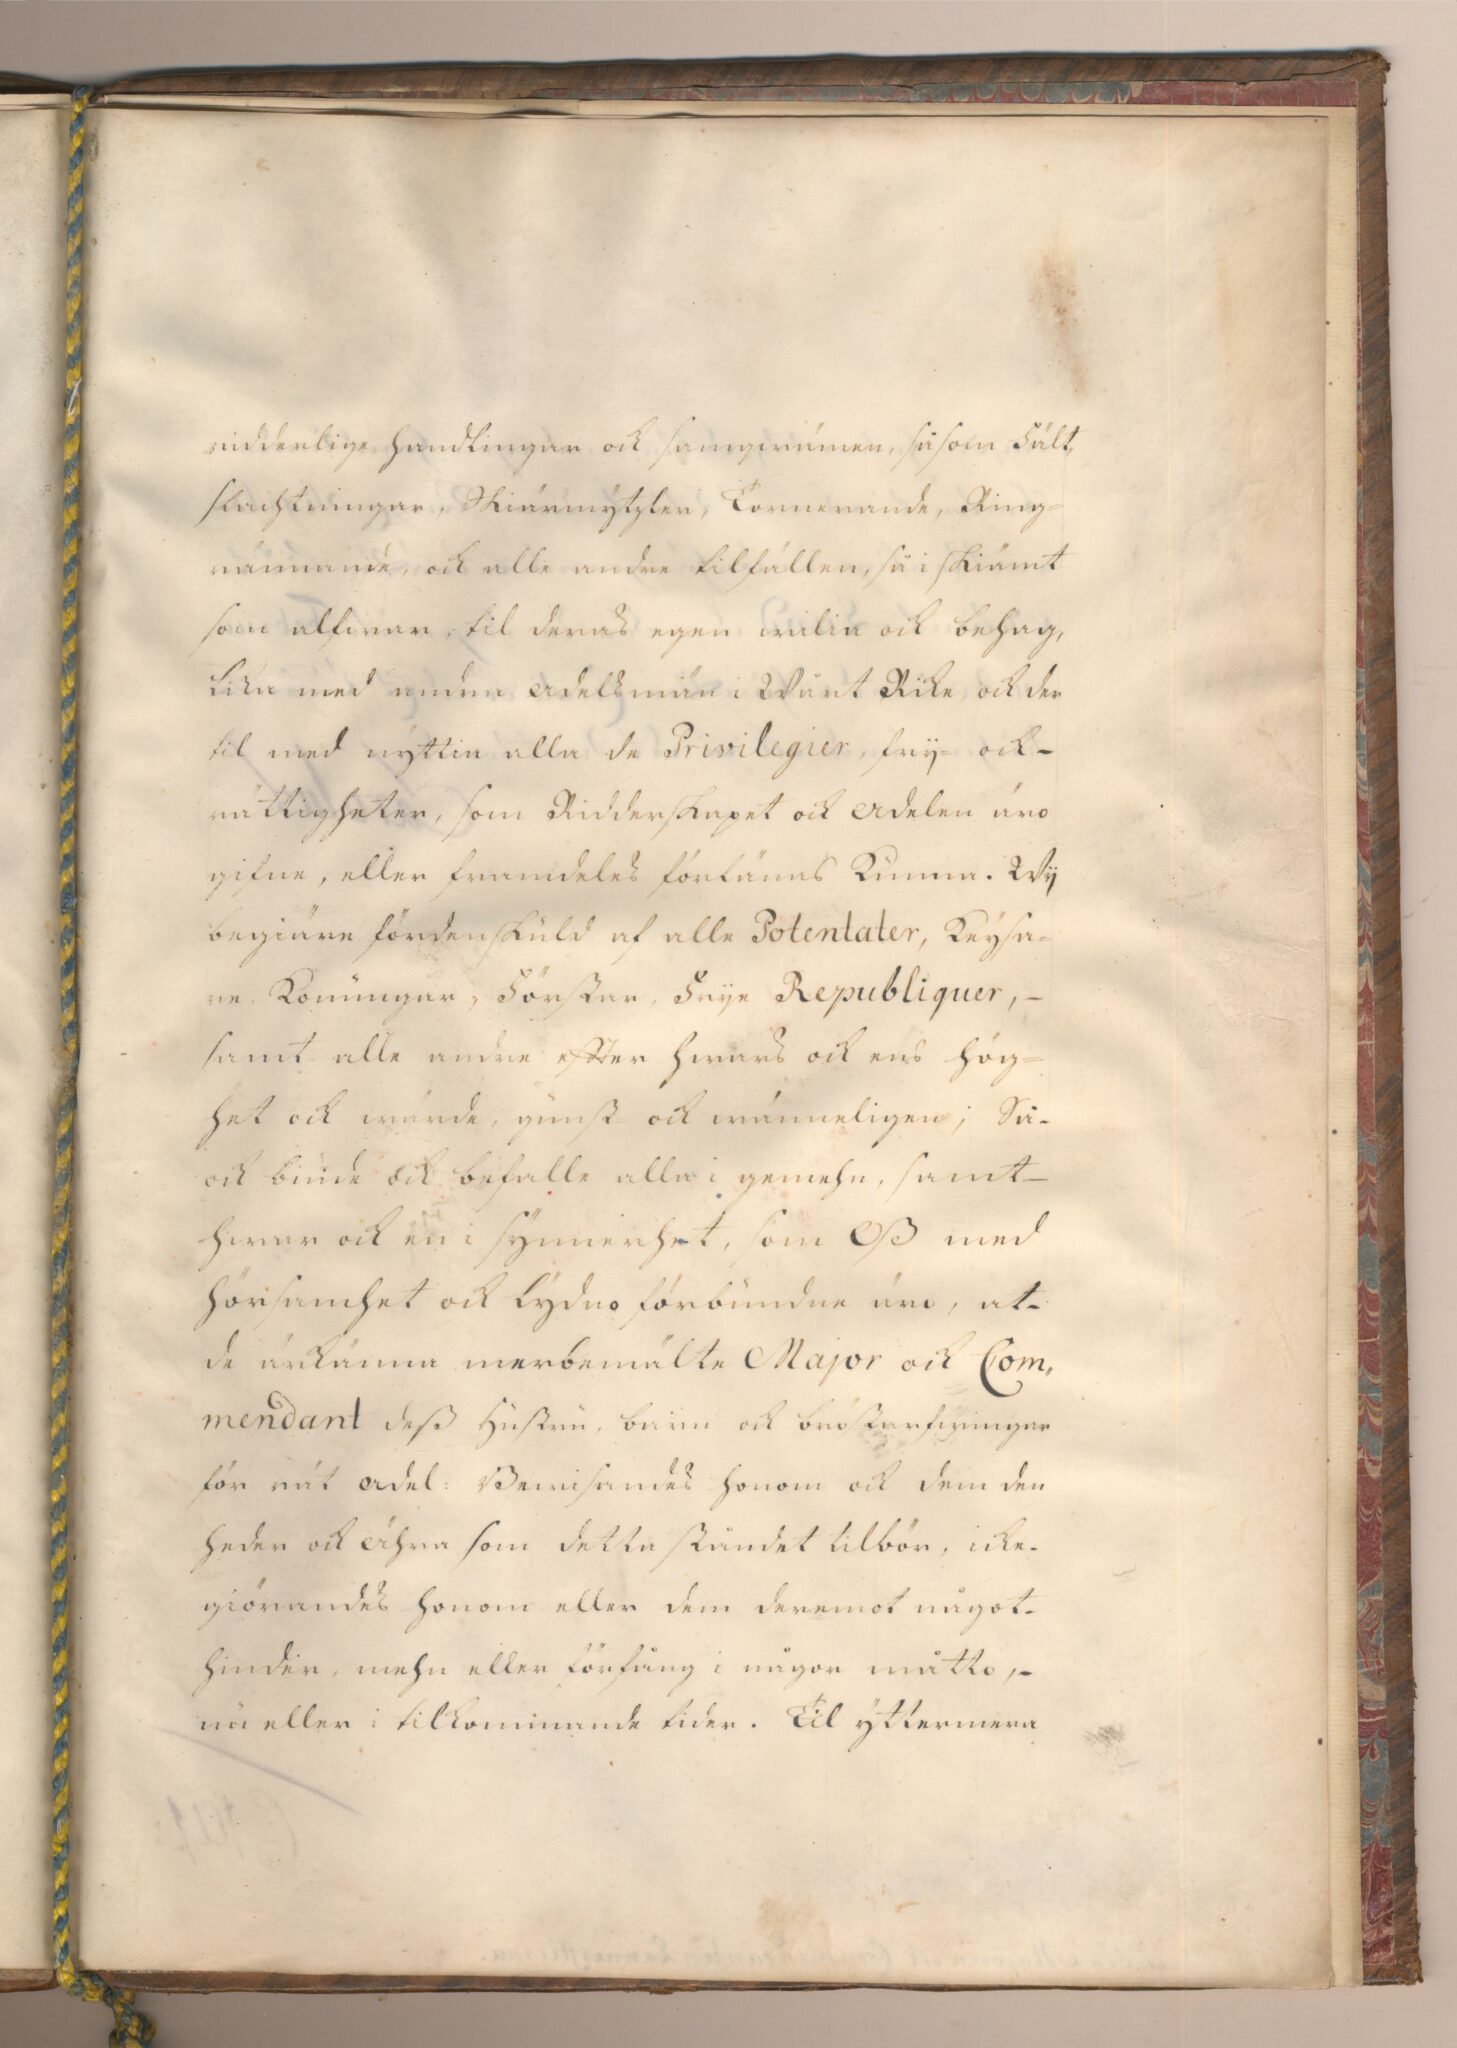 ridderlige handlingar ock sampqwämen, såsom Fält,
slachtningar, Skiärmytzler, Tornerande, Ring=
rännande, ock alle andre tilfällen, så i skiämt
som alfwar, til deras egen wilia ock behag,
lika med andra Adelsmän i Wårt Rike, ock der
til med nyttia alla de Privilegier, fry= ock-
rättigheter, som Ridderskapet ock Adelen äro
gifne, eller framdeles förlänas kunna. Wÿ
begiäre fördenskuld af alle Potentater, Keÿsa=
re, Konungar, Förstar, Frÿe Republiquer, -
samt alle andre efter hwars ock ens hög=
het ock wärde, gunst= ock wänneligen; Så-
ock biude ock befalle alla i gemehn, samt-
hwar ock en i synnerhet, som Oß med
hörsamhet ock lÿdno förbundne äro, at-
de ärkänna merbemälte Major ock Com,
mendant deß Hustru, barn ock bröstarfwingar
för rät Adel: Bewisandes honom ock dem den
heder ock Ähra som detta ståndet tilbör, icke-
giörandes honom eller dem deremot något-
hinder, mehn eller förfång i någor måtto, -
nu eller i tilkommande tider. Til ÿttermera